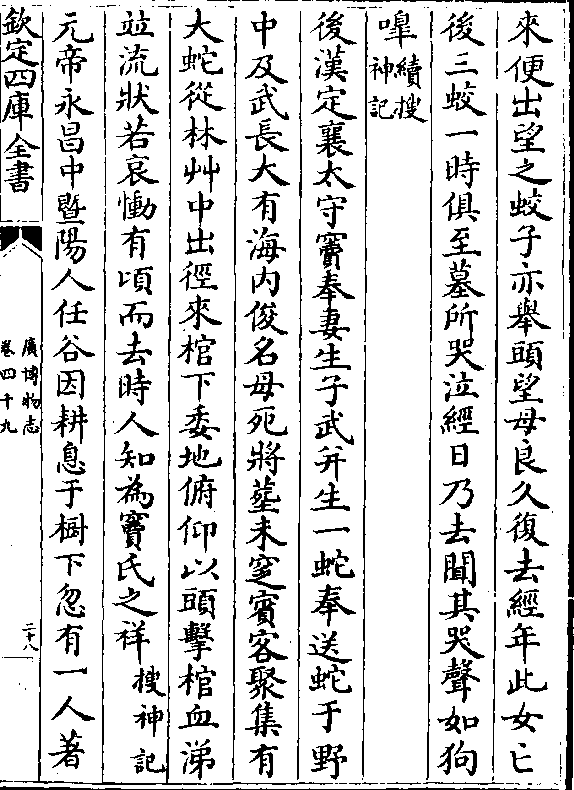 來便出望之蛟子亦舉頭望母良久復去經年此女亡
後三蛟一時俱至墓所哭泣經日乃去聞其哭聲如狗
嘷續搜神記
後漢定襄太守竇奉妻生子武并生一蛇奉送蛇于野
中及武長大有海内俊名母死將塟未窆賓客聚集有
大蛇從林艸中出徑來棺下委地俯仰以頭擊棺血涕
竝流狀若哀慟有頃而去時人知為竇氏之祥搜神記
元帝永昌中暨陽人任谷因耕息于樹下忽有一人著
欽定四庫全書
廣博物志
卷四十九
二十八